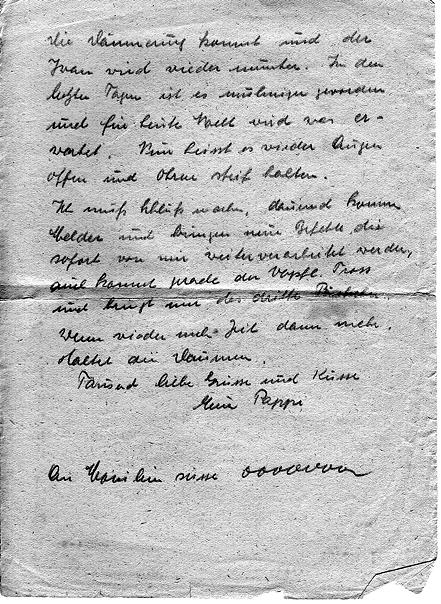 Die Dämmerung kommt und der
Ivan wird wieder munter. In den
letzten Tagen ist es ruhiger geworden
und für heute Nacht wird was er-
wartet. Nun heisst es wieder Augen
offen und Ohren steif halten.
Ich muß Schluß machen, dauernd kommen
Melder und bringen neue Befehle die
sofort von mir weiterverarbeitet werden,
auch kommt gerade der Verpfl. Tross
und bringt mir das dritte
Wenn wieder mehr Zeit dann mehr.
Haltet die Daumen.
Tausend liebe Grüsse und Küsse
Euer Pappi
An süsse ooooooo